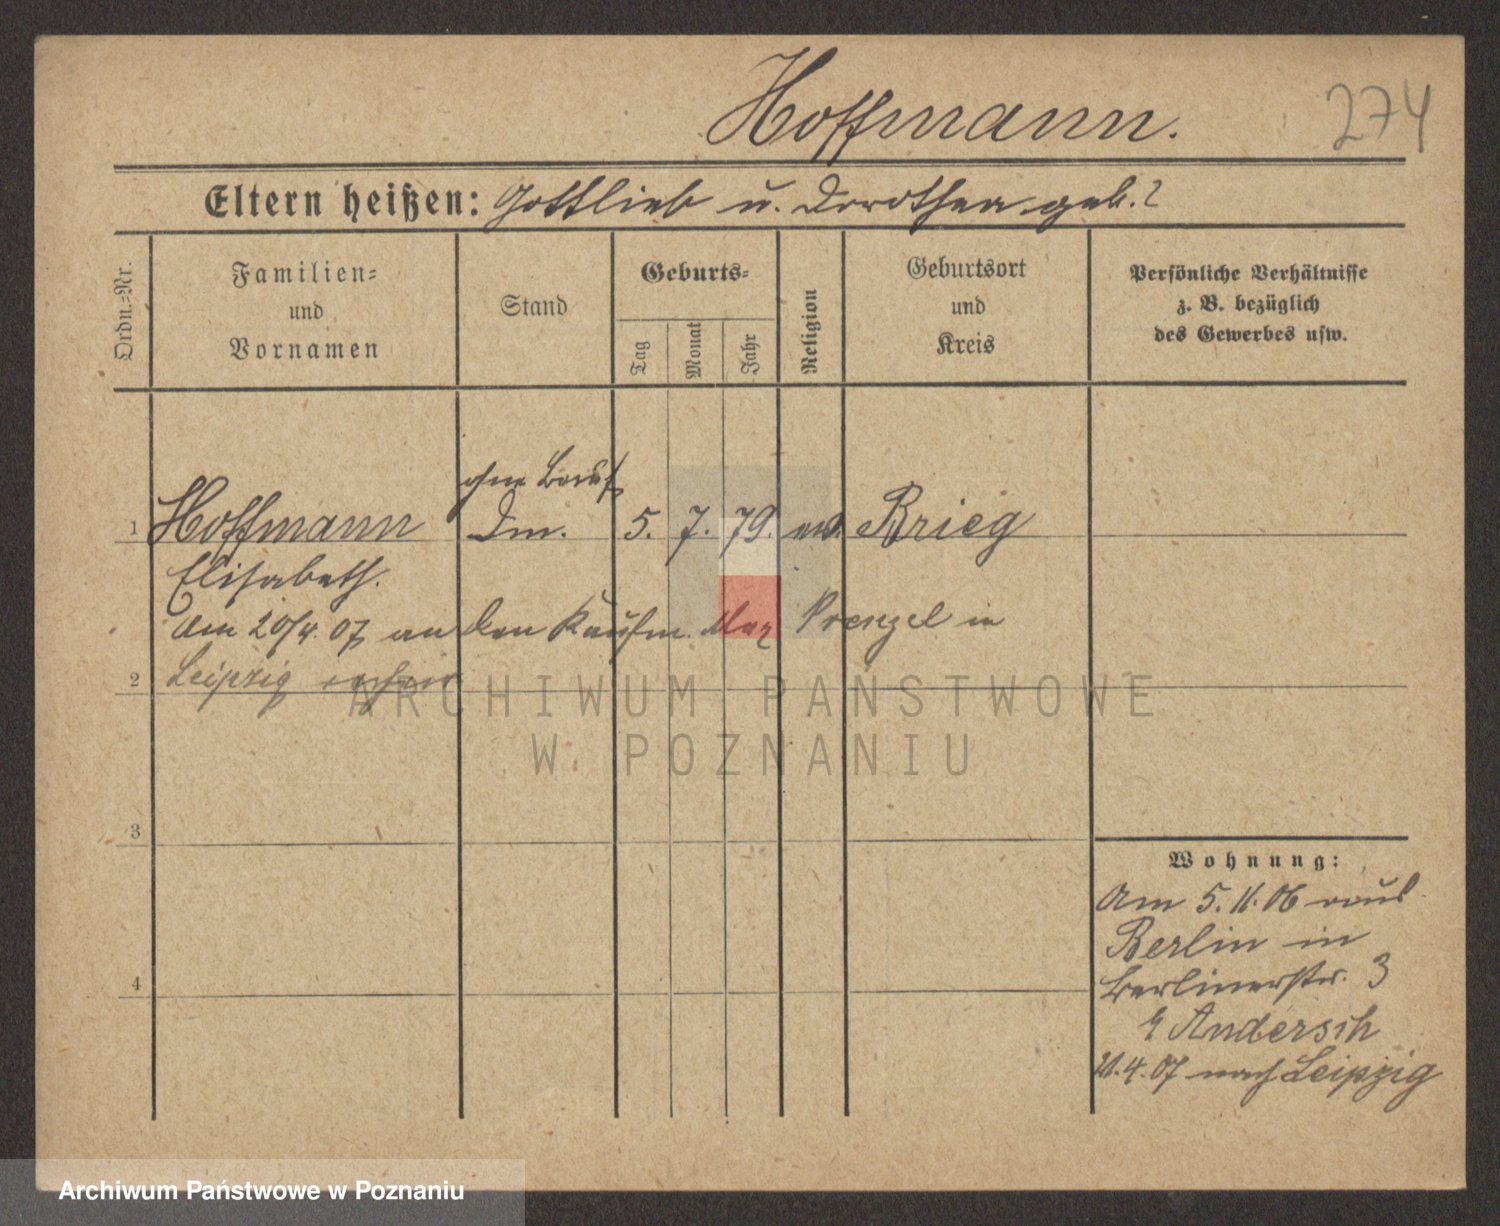 Hoffmann.
274
Eltern heißen: Gottlieb u. Dorothea geb. ?
Ordn.-Nr.
Familien-
und
Vornamen
Stand
Geburts-
Tag
Monat
Jahr
Religion
Geburtsort
und
Kreis
Persönliche Verhältnisse
z. B. bezüglich
des Gewerbes usw.
ohne Beruf
1 Hoffmann 5. 7. 79. Brieg
Elisabeth.
Am 20/4. 07 an den Kaufm. Max Prenzel in
2 Leipzig
ARCHIWUM PAŃSTWOWE
W POZNANIU
3
4
Wohnung:
Am 5. 11. 06 aus
Berlin in
Berlinerstr. 3
Andersch
4. 07 nach Leipzig
Archiwum Państwowe w Poznaniu